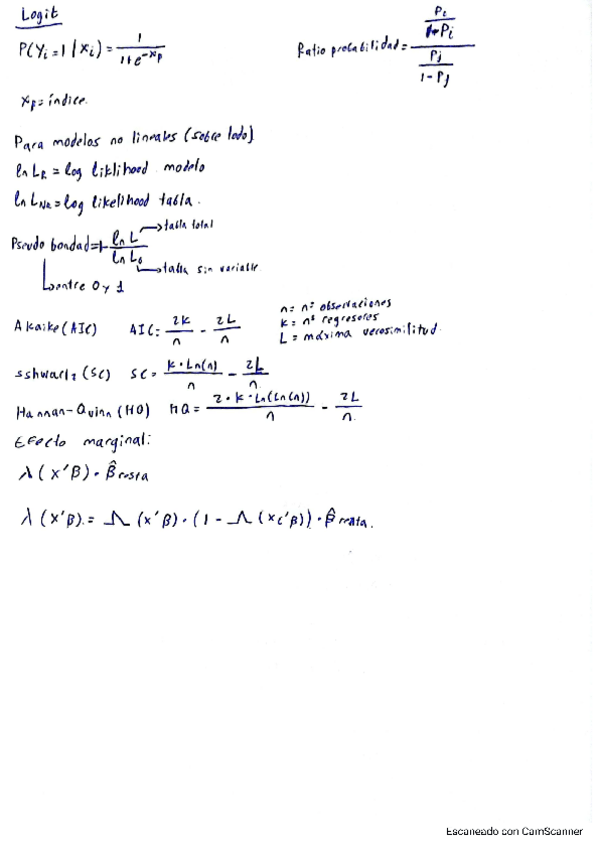 Logit
P(Yi=1/xi) = 1/(1+e^-xβ)
Ratio probabilidad = (Pi/(1-Pi))/(Pj/(1-Pj))
xβ = índice.
Para modelos no lineales (sobre todo)
ln LR = log liklihood modelo
ln LNR = log likelihood tabla.
Pseudo bondad = 1- ln L/ln L0
→ tabla total
→ tabla sin variable
entre 0 y 1
Akaike (AIC) AIC = 2k/n - 2L/n
n = nº observaciones
k = nº regresores
L = máxima verosimilitud.
sshwartz (SC) SC = k·Ln(n)/n - 2L/n
Hannan-Quinn (HQ) HQ = 2·k·Ln(Ln(n))/n - 2L/n
Efecto marginal:
λ(x'β)·β̂
λ(x'β) = Λ(x'β)·(1-Λ(xi'β))·β̂
Escaneado con CamScanner